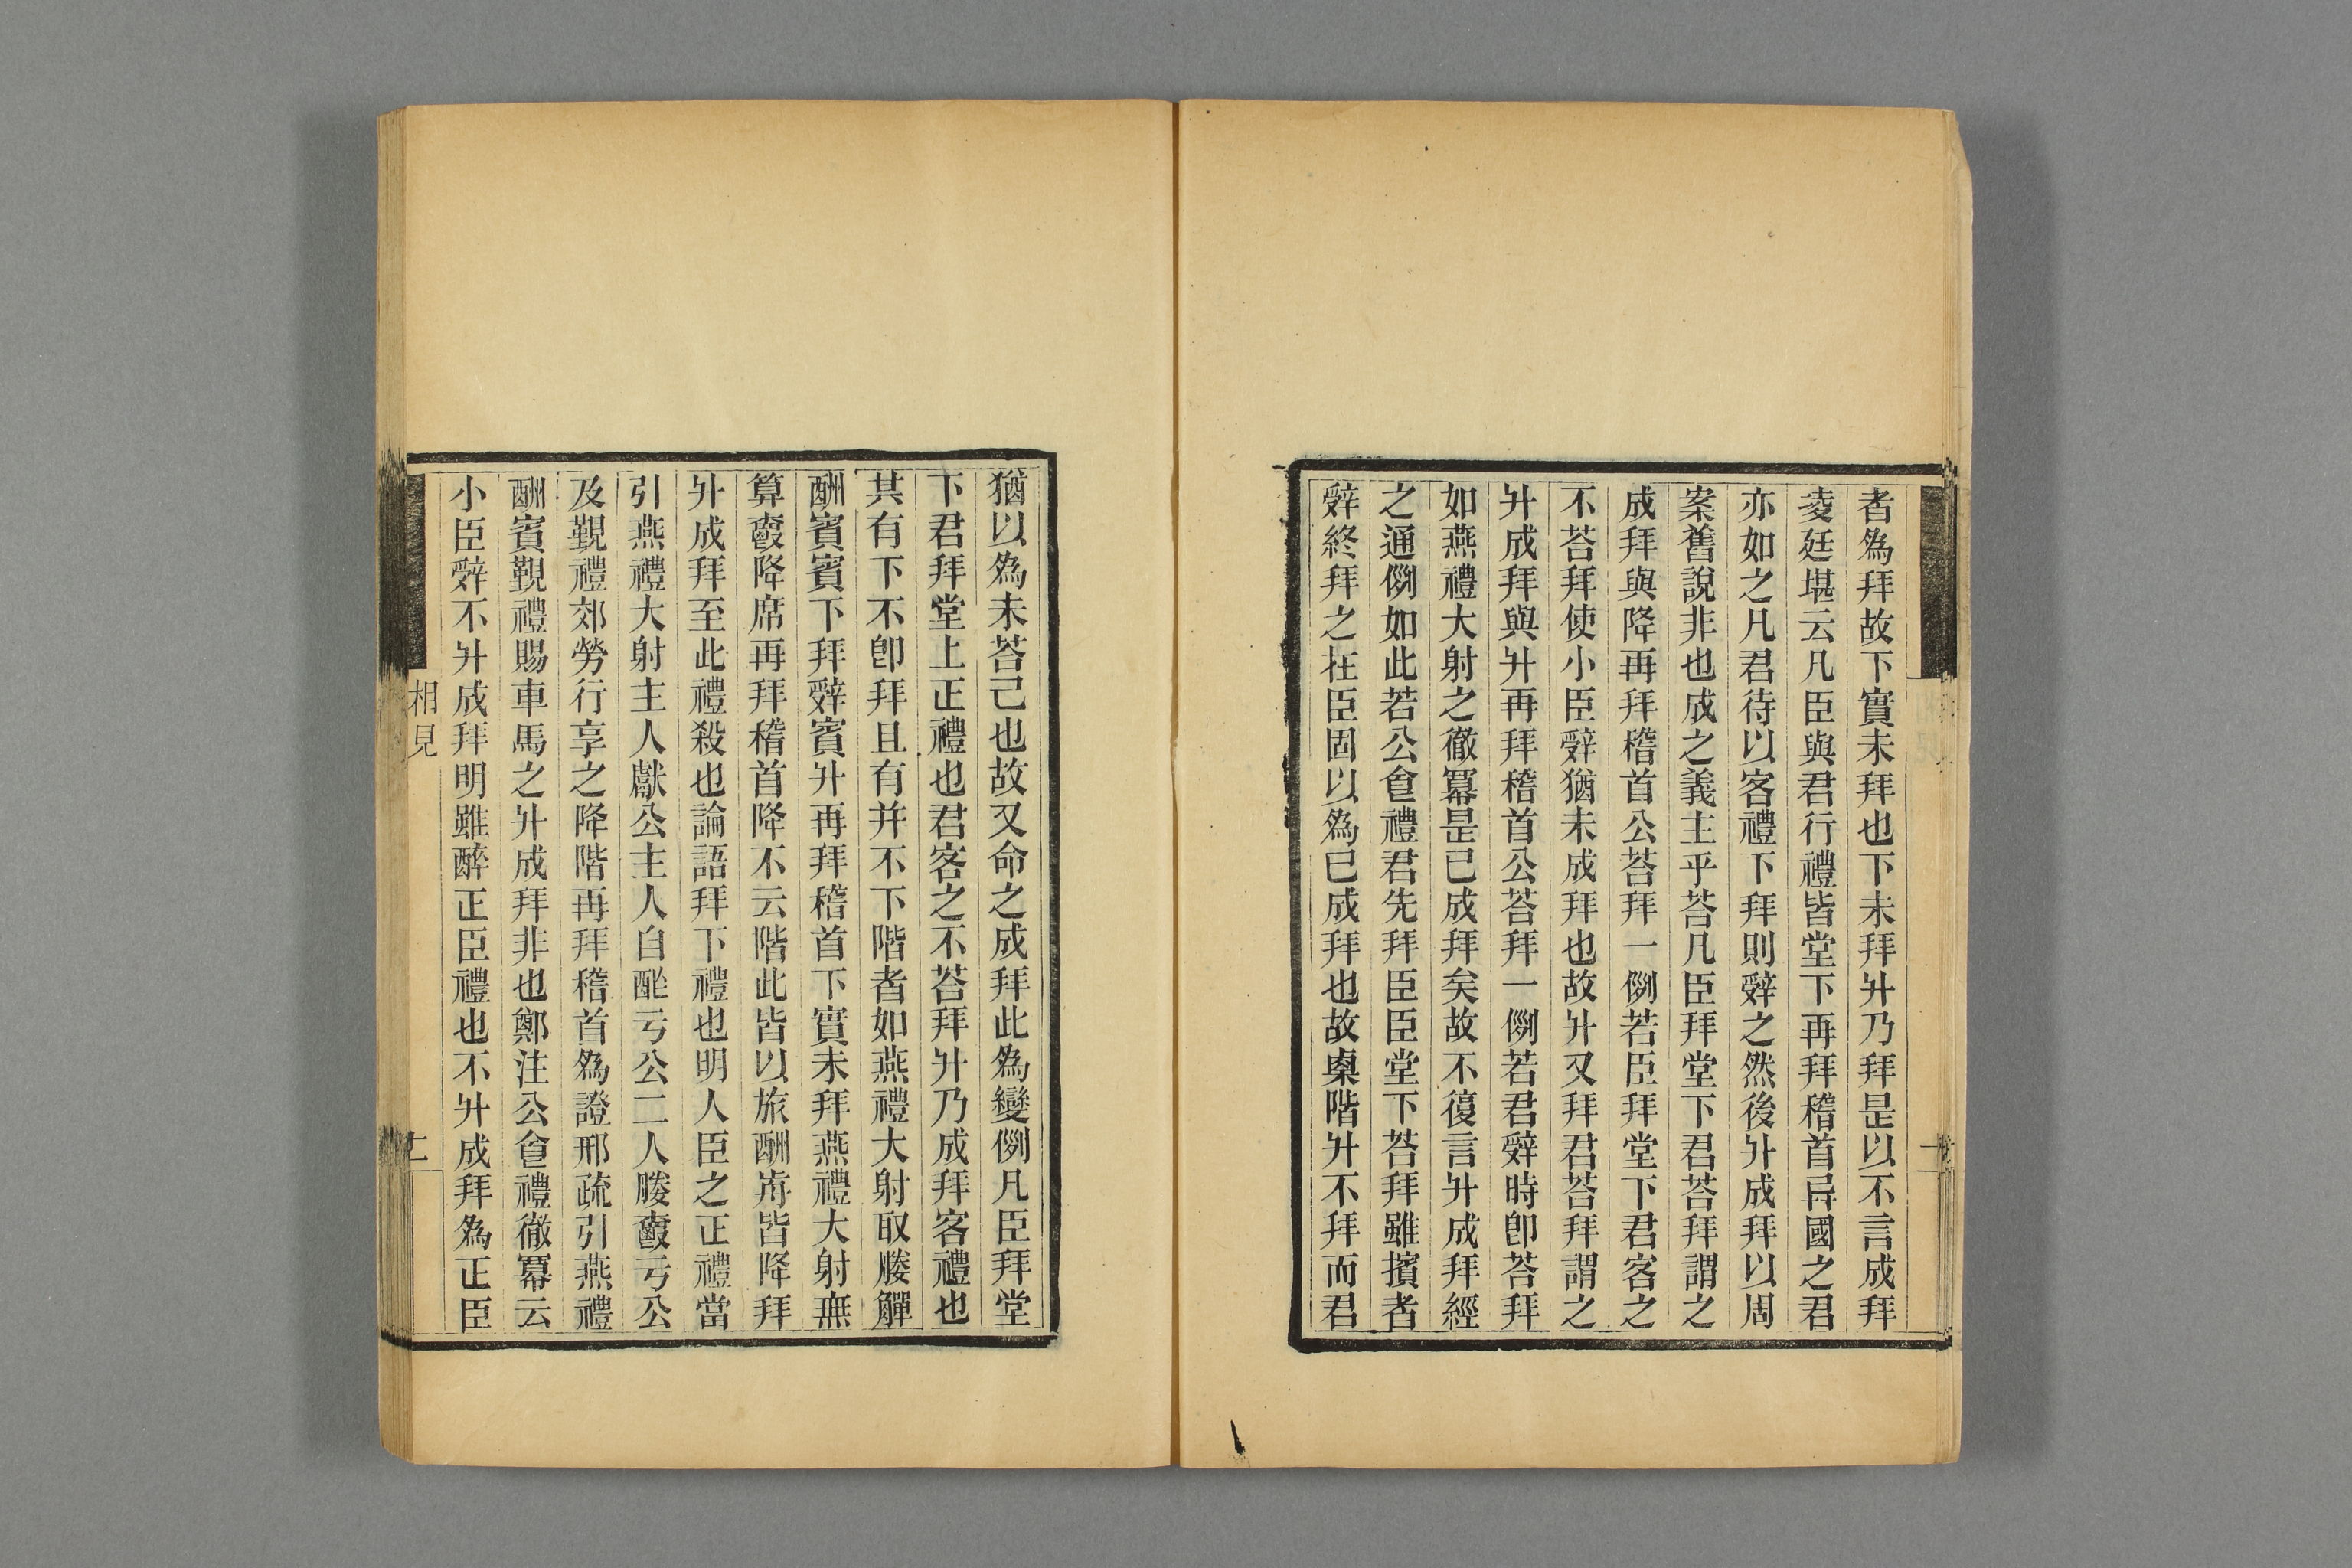 者爲拜故下實未拜也下未拜升乃拜是以不言成拜
凌廷堪云凡臣與君行禮皆堂下再拜稽首異國之君
亦如之凡君待以客禮下拜則辤之然後升成拜以周
案舊說非也成之義主乎荅凡臣拜堂下君荅拜謂之
成拜與降再拜稽首公荅拜一例若臣拜堂下君客之
不荅拜使小臣辤猶未成拜也故升又拜君荅拜謂之
升成拜與升再拜稽首公荅拜一例若君辤時卽荅拜
如燕禮大射之徹冪是已成拜矣故不復言升成拜經
之通例如此若公食禮君先拜臣臣堂下荅拜雖擯者
辤終拜之在臣固以爲已成拜也故㮚階升不拜而君
猶以爲未荅己也故又命之成拜此爲變例凡臣拜堂
下君拜堂上正禮也君客之不荅拜升乃成拜客禮也
其有下不卽拜且有并不下階者如燕禮大射取媵觶
酬賓賓下拜辤賓升再拜稽首下實未拜燕禮大射無
算爵降席再拜稽首降不云階此皆以旅酬歬皆降拜
升成拜至此禮殺也論語拜下禮也明人臣之正禮當
引燕禮大射主人獻公主人自酢亏公二人媵爵亏公
及覲禮郊勞行享之降階再拜稽首爲證邢疏引燕禮
酬賓覲禮賜車馬之升成拜非也鄭注公食禮徹冪云
小臣辤不升成拜明雖醉正臣禮也不升成拜爲正臣
相見
二